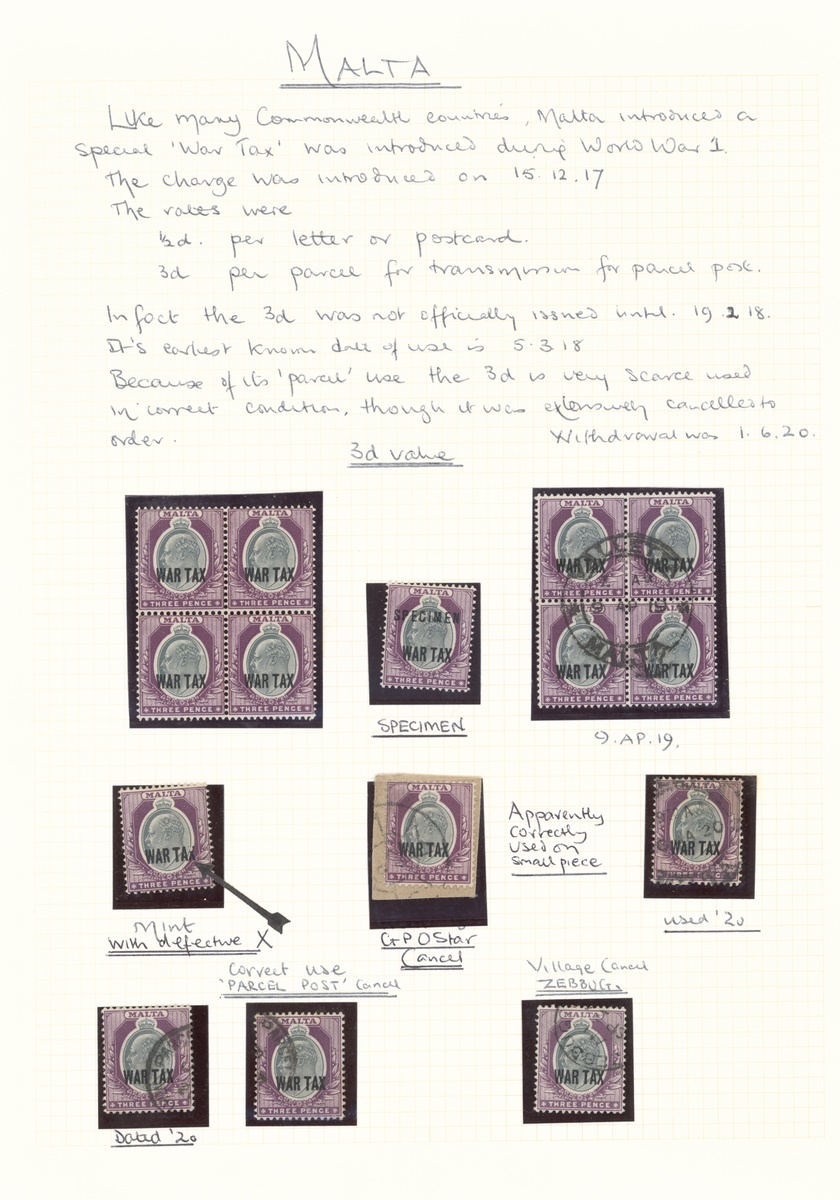 MALTA
Like many Commonwealth countries, Malta introduced a
special 'War Tax' was introduced during World War 1.
The charge was introduced on 15.12.17
The rates were
½d. per letter or postcard.
3d per parcel for transmission for parcel post.
In fact the 3d was not officially issued until. 19.2.18.
It's earliest known date of use is 5.3.18
Because of its 'parcel' use the 3d is very scarce used
in correct condition, though it was extensively cancelled to
order. Withdrawal was 1.6.20.
3d value
MALTA MALTA
WAR TAX WAR TAX
THREE PENCE THREE PENCE
MALTA MALTA
WAR TAX WAR TAX
THREE PENCE THREE PENCE
MALTA
SPECIMEN
WAR TAX
THREE PENCE
SPECIMEN
MALTA MALTA
WAR TAX WAR TAX
THREE PENCE THREE PENCE
WAR TAX WAR TAX
THREE PENCE THREE PENCE
VALLETTA
9 AP 19
MALTA
9.AP.19.
MALTA
WAR TAX
THREE PENCE
Mint
with defective X
MALTA
WAR TAX
THREE PENCE
GPO Star
Cancel
Apparently
correctly
used on
small piece
MALTA
WAR TAX
THREE PENCE
used '20
Correct use
'PARCEL POST' Cancel
Village Cancel
ZEBBUG.
MALTA
WAR TAX
THREE PENCE
Dated '20
MALTA
WAR TAX
THREE PENCE
MALTA
WAR TAX
THREE PENCE